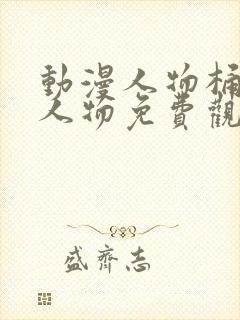 動漫人物桶
人物免費觀
盛齊志